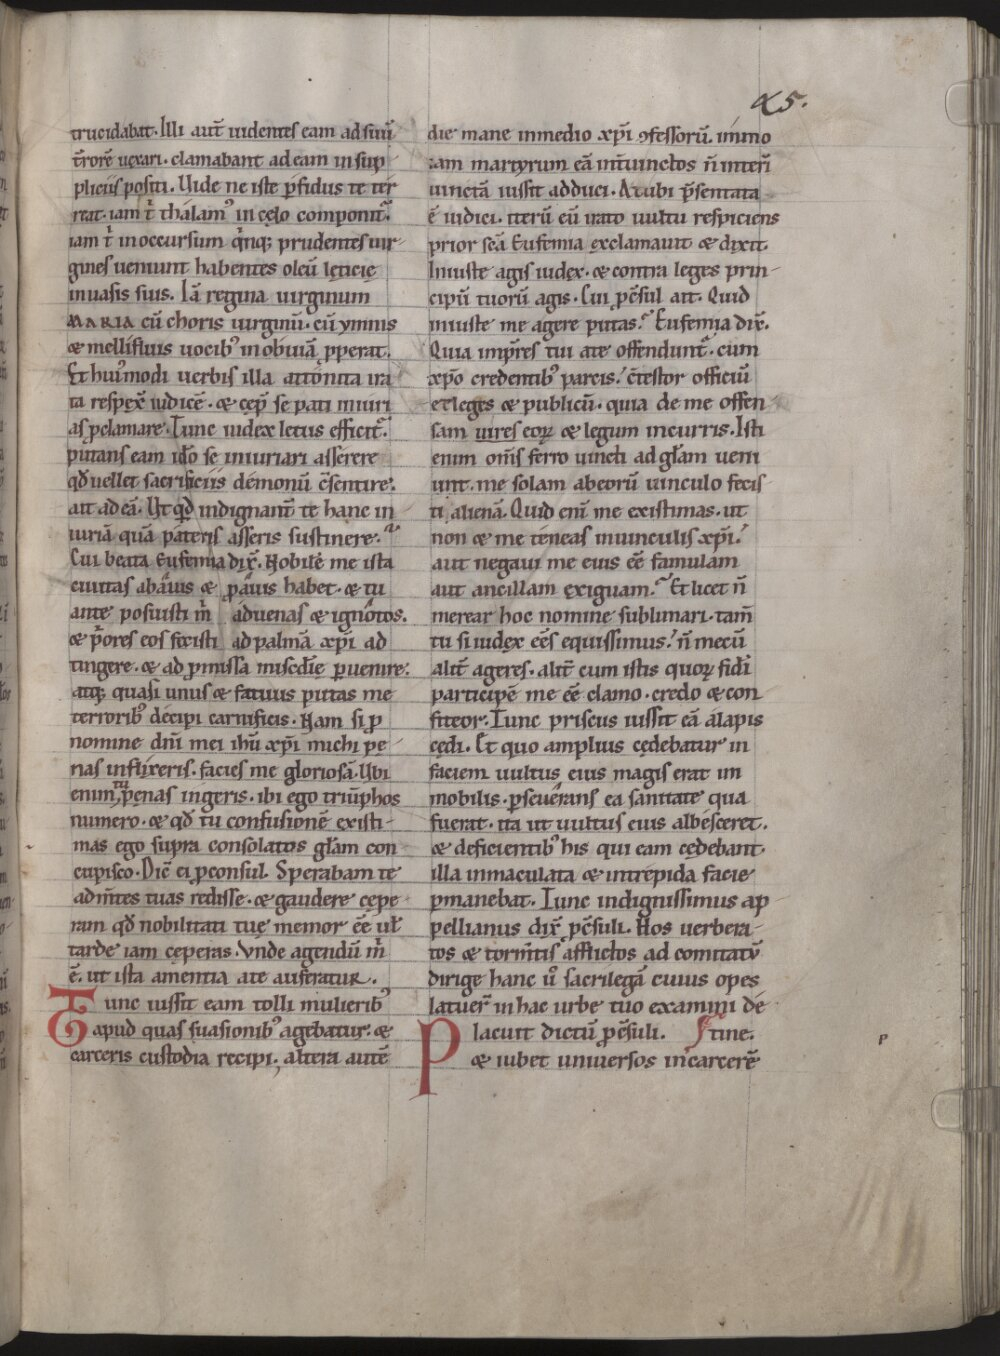 45.
trucidabat. Illi aut̄ uidentes eam ad suū
t̄rorē uexari. clamabant ad eam in sup-
pliciis positi. Uide ne iste p̄fidus te ter
reat. iam t̄ thalamꝰ in cęlo componit᷑.
iam t̄ in occursum q̄nq; prudentes uir-
gines ueniunt habentes oleū lęticię
in uasis suis. Iā regina uirginum
MARIA cū choris uirginū. cū ymnis
& mellifluis uocibꝰ in obuiā ꝓperat.
Et huiꝰmodi uerbis illa attonita ira
ta respex̄ iudicē. & cęp̄ se pati iniuri
as ꝓclamare. Tunc iudex letus efficit᷑.
putans eam id̄o se iniuriari asserere
qđ uellet sacrificiis demonū c̄sentire.
ait ad eā. Ut qd̄ indignant̄ te hanc in
iuriā quā pateris asseris sustinere.
Cui beata Eufemia dix̄. Nobilē me ista
ciuitas ab auis & ꝓauis habet. & tu
ante posuisti m̄ aduenas & ignotos.
& p̄ores eos fecisti ad palmā xp̄i ad
tingere. & ad ꝓmissa misc̄die ꝑuenire.
atq; quasi unus & fatuus putas me
terroribꝰ decipi carnificis. Nam si ꝓ
nomine dn̄i mei ihū xp̄i michi pę-
nas inflixeris. facies me gloriosā. Ubi
enim tu pęnas ingeris. ibi ego triūphos
numero. & qđ tu confusionē existi-
mas ego supra consolatos gl̄am con
cupisco. Dic̄ ei ꝓconsul. Sperabam te
ad m̄tes tuas redisse. & gaudere cępe
ram qđ nobilitati tuę memor ēē uł
tarde iam cęperas. Vnde agendū m̄
ē. ut ista amentia a te auferatur.
Tunc iussit eam tolli mulieribꝰ
apud quas suasionibꝰ agebatur. &
carceris custodia recipi. altera autē
die mane in medio xp̄i ꝯfessorū. immo
iam martyrum eā int̄ uinctos n̄ inter̄
uinctā iussit adduci. At ubi p̄sentata
ē iudici. iterū eū irato uultu respiciens
prior sc̄a Eufemia exclamauit & dixit.
Iniuste agis iudex. & contra leges prin-
cipū tuorū agis. Cui ꝓc̄sul ait. Quid
iniuste me agere putas. Eufemia dix̄.
Quia imp̄res tui a te offendunt᷑. cum
xp̄o credentibꝰ parcis. c̄testor officiū
et leges & publicū. quia de me offen-
sam uires eoꝝ & legum incurris. Isti
enim om̄s ferro uincti ad gl̄am ueni
unt. me solam ab eorū uinculo fecis-
ti alienā. Quid eni me existimas. ut
non & me teneas in uinculis xp̄i.
aut negaui me eius ēē famulam
aut ancillam exiguam. Et licet n̄
merear hoc nomine sublimari. tam̄
tu si iudex eēs equissimus. n̄ mecū
alit̄ ageres. alit̄ cum istis quoꝝ fidi
participē me ēē clamo. credo & con
fiteor. Tunc priscus iussit eā alapis
cędi. Et quo amplius cędebatur in
faciem uultus eius magis erat im
mobilis. ꝑseuerans ea sanitate qua
fuerat. ita ut uultus eius albesceret.
& deficientibꝰ his qui eam cędebant.
illa inmaculata & intrepida facie
ꝑmanebat. Tunc indignissimus ap
pellianus dix̄ ꝓc̄suli. Hos uerbera-
tos & torm̄tis afflictos ad comitatū
dirige hanc ů sacrilegā cuius opes
latuer̄ in hac urbe tuo examini de
Placuit dictū ꝓc̄suli. stine.
& iubet uniuersos in carcerē
p